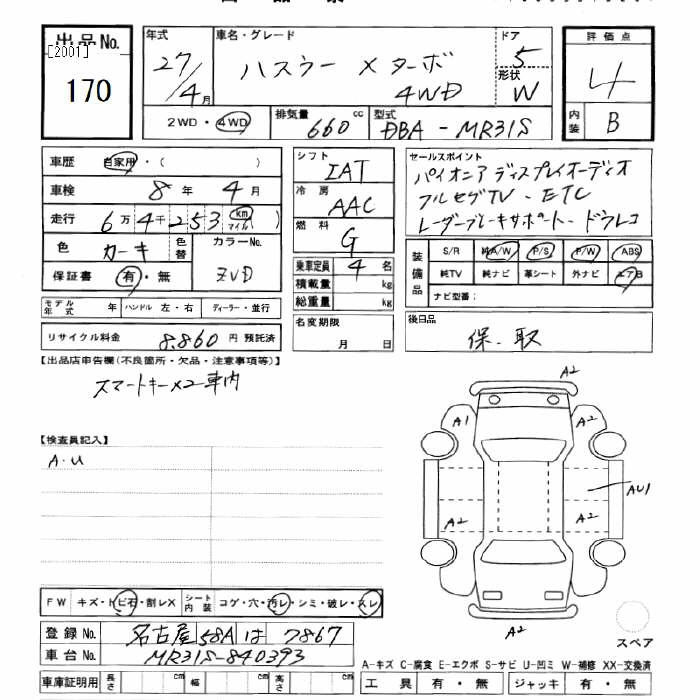 出品No.
[2001]
170
年式 27/4月
車名・グレード ハスラー Xターボ 4WD
ドア 5
形状 W
評価点 4
内装 B
2WD・4WD
排気量 660 cc
型式 DBA-MR31S
車歴 自家用・( )
車検 8年 4月
走行 6万4千253 (km マイル)
色 カーキ 色替 カラーNo. ZVD
保証書 有・無
モデル年式 年 ハンドル 左・右 ディーラー・並行
リサイクル料金 8,860円 預託済
シフト IAT
冷房 AAC
燃料 G
乗車定員 4名
積載量 kg
総重量 kg
名変期限 月 日
セールスポイント
パイオニア ディスプレイオーディオ
フルセグTV・ETC
レーダーブレーキサポート・ドラレコ
装備品 S/R 純A/W P/S P/W ABS
純TV 純ナビ 革シート 外ナビ エアB
ナビ型番:
後日品
保・取
【出品店申告欄(不良箇所・欠品・注意事項等)】
スマートキー×2 車内
【検査員記入】
A・U
A2
A1
A2
AU1
A2
A2
A2
スペア
FW キズ・トビ石・割レX シート内装 コゲ・穴・汚レ・シミ・破レ・スレ
登録No. 名古屋 58A は 7867
車台No. MR31S-840393
A-キズ C-腐食 E-エクボ S-サビ U-凹ミ W-補修 XX-交換済
車庫証明用 長さ cm 幅 cm 高さ cm
工具 有・無 ジャッキ 有・無